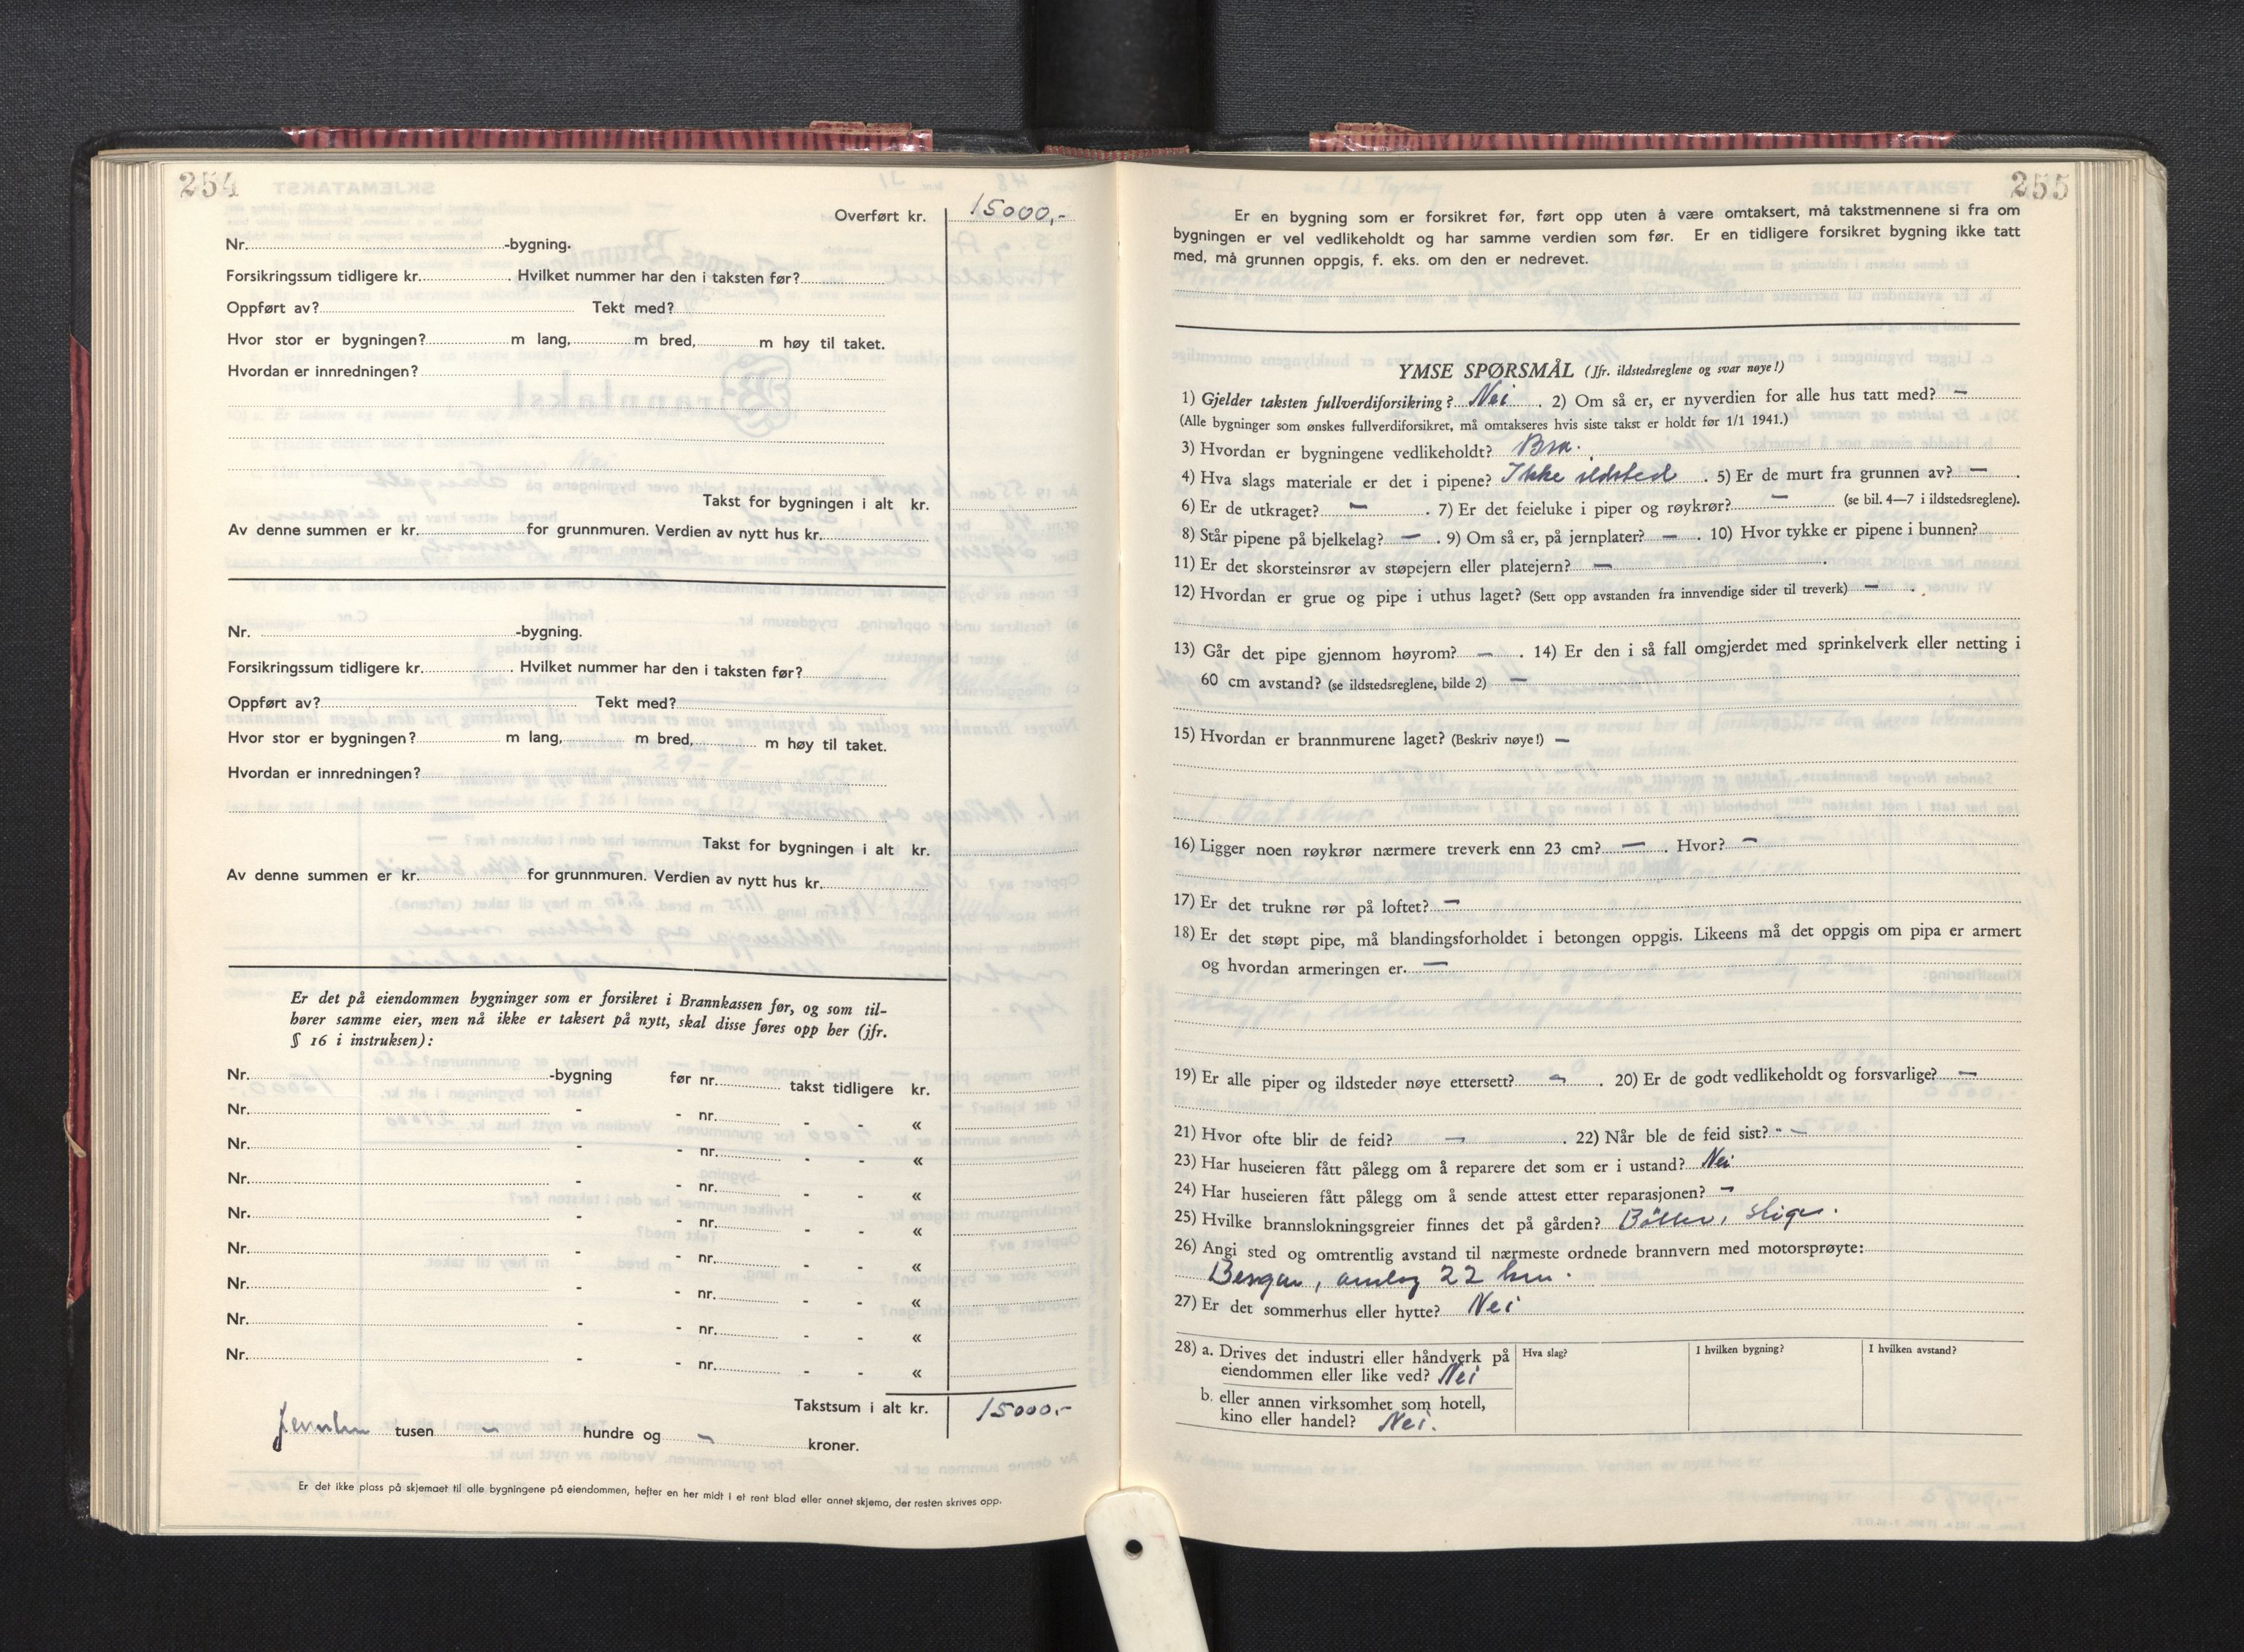 254
Overført kr. 15000,-
Nr. -bygning.
Forsikringssum tidligere kr. . Hvilket nummer har den i taksten før?
Oppført av? Tekt med?
Hvor stor er bygningen? m lang, m bred, m høy til taket.
Hvordan er innredningen?
Takst for bygningen i alt kr.
Av denne summen er kr. for grunnmuren. Verdien av nytt hus kr.
Nr. -bygning.
Forsikringssum tidligere kr. . Hvilket nummer har den i taksten før?
Oppført av? Tekt med?
Hvor stor er bygningen? m lang, m bred, m høy til taket.
Hvordan er innredningen?
Takst for bygningen i alt kr.
Av denne summen er kr. for grunnmuren. Verdien av nytt hus kr.
Er det på eiendommen bygninger som er forsikret i Brannkassen før, og som til-
hører samme eier, men nå ikke er taksert på nytt, skal disse føres opp her (jfr.
§ 16 i instruksen):
Nr. -bygning før nr. takst tidligere kr.
Nr. - - nr. - - «
Nr. - - nr. - - «
Nr. - - nr. - - «
Nr. - - nr. - - «
Nr. - - nr. - - «
Nr. - - nr. - - «
Nr. - - nr. - - «
Nr. - - nr. - - «
Takstsum i alt kr. 15000,-
tusen – hundre og – kroner.
Er det ikke plass på skjemaet til alle bygningene på eiendommen, hefter en her midt i et rent blad eller annet skjema, der resten skrives opp.
255
Er en bygning som er forsikret før, ført opp uten å være omtaksert, må takstmennene si fra om
bygningen er vel vedlikeholdt og har samme verdien som før. Er en tidligere forsikret bygning ikke tatt
med, må grunnen oppgis, f. eks. om den er nedrevet.
YMSE SPØRSMÅL (Jfr. ildstedsreglene og svar nøye!)
1) Gjelder taksten fullverdiforsikring? Nei . 2) Om så er, er nyverdien for alle hus tatt med? –
(Alle bygninger som ønskes fullverdiforsikret, må omtakseres hvis siste takst er holdt før 1/1 1941.)
3) Hvordan er bygningene vedlikeholdt? Bra.
4) Hva slags materiale er det i pipene? Ikke ildsted . 5) Er de murt fra grunnen av? – .
6) Er de utkraget? – . 7) Er det feieluke i piper og røykrør? – (se bil. 4—7 i ildstedsreglene).
8) Står pipene på bjelkelag? – . 9) Om så er, på jernplater? – . 10) Hvor tykke er pipene i bunnen?
11) Er det skorsteinsrør av støpejern eller platejern? – .
12) Hvordan er grue og pipe i uthus laget? (Sett opp avstanden fra innvendige sider til treverk) – .
13) Går det pipe gjennom høyrom? – . 14) Er den i så fall omgjerdet med sprinkelverk eller netting i
60 cm avstand? (se ildstedsreglene, bilde 2) –
15) Hvordan er brannmurene laget? (Beskriv nøye!) –
16) Ligger noen røykrør nærmere treverk enn 23 cm? – . Hvor? –
17) Er det trukne rør på loftet? –
18) Er det støpt pipe, må blandingsforholdet i betongen oppgis. Likeens må det oppgis om pipa er armert
og hvordan armeringen er. –
19) Er alle piper og ildsteder nøye ettersett? – . 20) Er de godt vedlikeholdt og forsvarlige? –
21) Hvor ofte blir de feid? – . 22) Når ble de feid sist? –
23) Har huseieren fått pålegg om å reparere det som er i ustand? Nei
24) Har huseieren fått pålegg om å sende attest etter reparasjonen? –
25) Hvilke brannslokningsgreier finnes det på gården? Bøtter, stige.
26) Angi sted og omtrentlig avstand til nærmeste ordnede brannvern med motorsprøyte:
Bergen, omlag 22 km.
27) Er det sommerhus eller hytte? Nei
28) a. Drives det industri eller håndverk på
eiendommen eller like ved? Nei
Hva slag? I hvilken bygning? I hvilken avstand?
b. eller annen virksomhet som hotell,
kino eller handel? Nei.